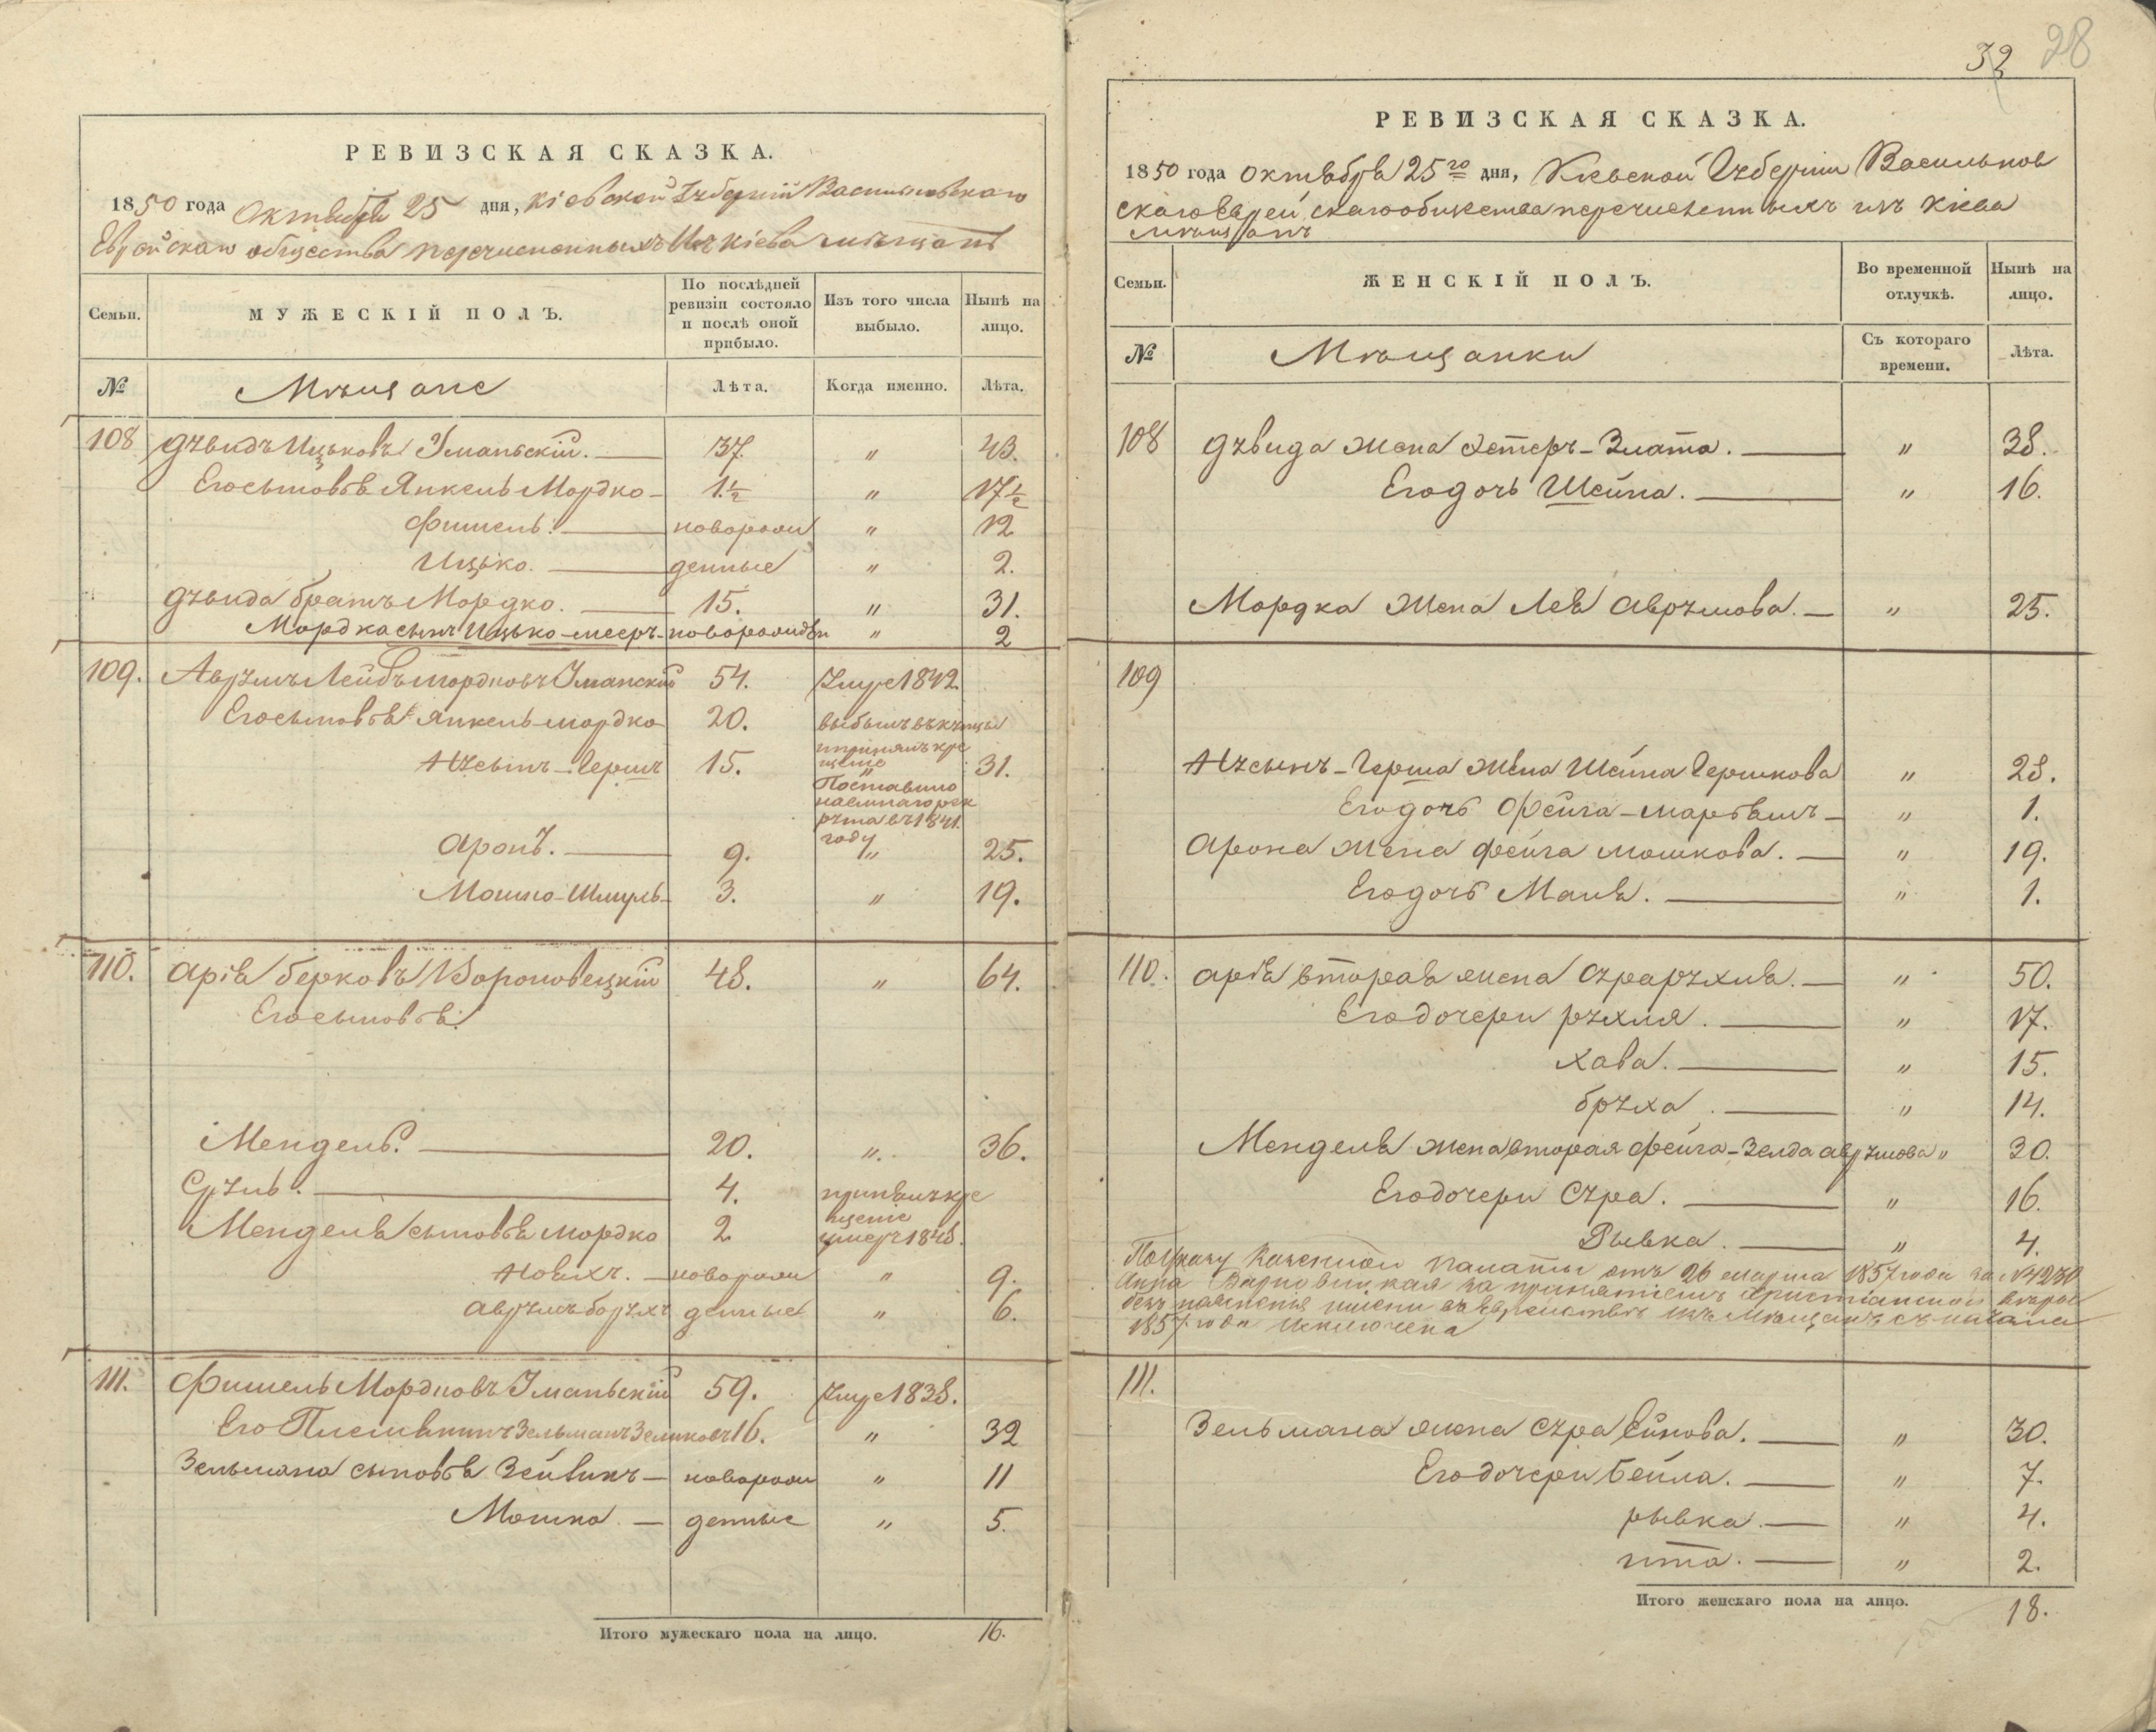 РЕВИЗСКАЯ СКАЗКА.
1850 года Октября 25 дня, Кіевской Губерніи Васильковскаго
Еврейскаго общества перечисленныхъ Изъ Кіева мѣщанъ
Семьи.
МУЖЕСКІЙ ПОЛЪ.
По послѣдней ревизіи состояло и послѣ оной прибыло.
Изъ того числа выбыло.
Нынѣ на лицо.
№
Мѣщане
Лѣта.
Когда именно.
Лѣта.
108 Дувидъ Ицьковъ Уманьскій. 37. " 43.
Его сыновья Янкель Мордко 1½ " 17½
Фишель. новорож " 12
Ицько. денные " 2.
Дувида братъ Мордко. 15. " 31.
Мордка сынъ Ицько-мееръ новорожден " 2
109. Аврумъ Лейбъ Мордковъ Уманскій 54. Умре 1842.
Его сыновья Янкель-мордко 20. выбылъ въ купцы
принялъ кре
щеніе
Нусынъ-Гершъ 15. " 31.
Поставило
наемнаго рек
рута въ 1841.
году
Аронъ. 9. " 25.
Мошко-Шмуль 3. " 19.
110. Арія Берковъ Вороновецкій 48. " 64.
Его сыновья.
Мендель. 20. " 36.
Сруль. 4. принялъ кре
щеніе
Менделя сыновья мордко 2 умеръ 1848.
Новахъ. новорож " 9.
Аврумъ борухъ денные " 6.
111. Фишель Мордковъ Уманьскій 59. Умре 1838.
Его Племянникъ Зельманъ Зеликовъ 16. " 32
Зельмана сыновья Зейвикъ новорож " 11
Мошко. денные " 5.
Итого мужескаго пола на лицо. 16.
32 28
РЕВИЗСКАЯ СКАЗКА.
1850 года октября 25го дня, Кіевской Губерніи Васильков
скаго Еврейскаго общества перечисленныхъ изъ Кіева
мѣщанъ
Семьи.
ЖЕНСКІЙ ПОЛЪ.
Во временной отлучкѣ.
Нынѣ на лицо.
№
Мѣщанки
Съ котораго времени.
Лѣта.
108 Дувида жена Хетеръ-Злата. " 38.
Его дочь Шейна. " 16.
Мордка жена Лея Аврумова. " 25.
109
Нусынъ-Герша жена Шейна Гершкова " 28.
Его дочь Фейга-марьямъ " 1.
Арона жена фейга мошкова. " 19.
Его дочь Маня. " 1.
110. Арія вторая жена Сурарухля. " 50.
Его дочери рухля. " 17.
хава. " 15.
бруха. " 14.
Менделя жена вторая фейга-Зелда аврумова " 30.
Его дочери Сура. " 16.
Рывка. " 4.
По Указу Казенной Палаты отъ 26 марта 1857 года за №4230
Анна за принятіемъ Христіанской вѣры
безъ поясненія имени въ Еврействѣ изъ Мѣщанъ съ начала
1857 года Исключена
111.
Зельмана жена Сура Ейнова. " 30.
Его дочери Бейла. " 7.
рывка. " 4.
ита. " 2.
Итого женскаго пола на лицо. 18.